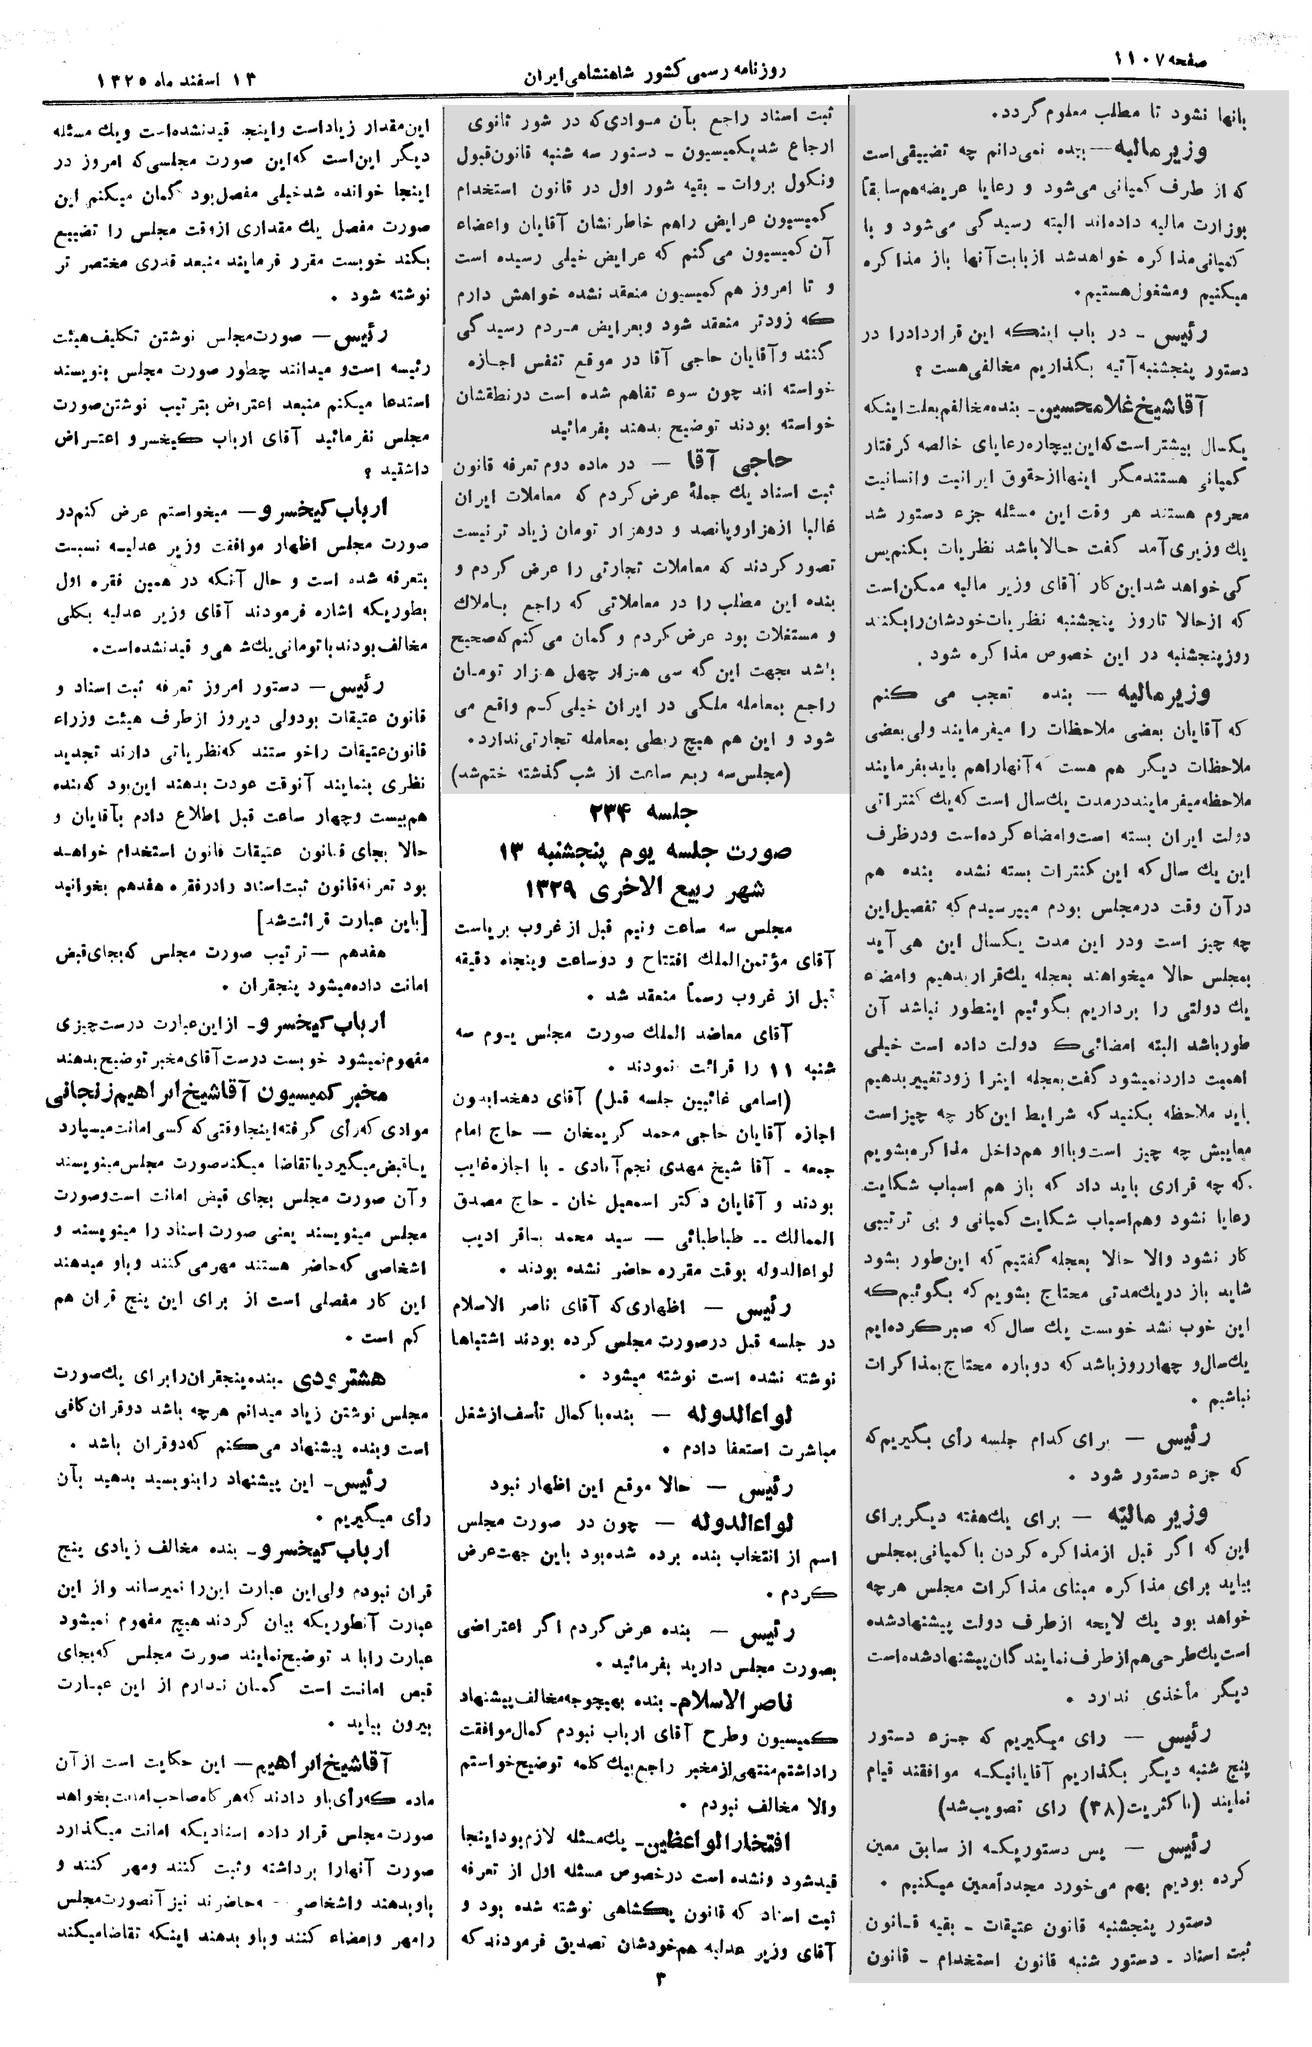 صفحه ۱۱۰۷
روزنامه رسمی کشور شاهنشاهی ایران
۱۳ اسفند ماه ۱۳۲۵
بانها نشود تا مطلب معلوم گردد.
وزیر مالیه — بنده نمی‌دانم چه تضییقی است
که از طرف کمپانی می‌شود و رعایا عریضه هم سابقاً
بوزارت مالیه داده‌اند البته رسیدگی می‌شود و با
کمپانی مذاکره خواهد شد از بابت آنها باز مذاکره
میکنیم و مشغول هستیم.
رئیس - در باب اینکه این قرارداد را در
دستور پنجشنبه آتیه بگذاریم مخالفی هست ؟
آقا شیخ غلامحسین - بنده مخالفم بعلت اینکه
یکسال بیشتر است که این بیچاره رعایای خالصه گرفتار
کمپانی هستند مگر اینها از حقوق ایرانیت و انسانیت
محروم هستند هر وقت این مسئله جزء دستور شد
یك وزیری آمد گفت حالا باشد نظریات بکنم پس
کی خواهد شد این کار آقای وزیر مالیه ممکن است
که از حالا تا روز پنجشنبه نظریات خودشان را بکنند
روز پنجشنبه در این خصوص مذاکره شود .
وزیر مالیه — بنده تعجب می کنم
که آقایان بعضی ملاحظات را میفرمایند ولی بعضی
ملاحظات دیگر هم هست که آنها را هم باید بفرمایند
ملاحظه میفرمایند در مدت یك سال است که یك کنتراتی
دولت ایران بسته است و امضاء کرده است و در ظرف
این یك سال که این کنترات بسته نشده بنده هم
در آن وقت در مجلس بودم میپرسیدم که تفصیل این
چه چیز است و در این مدت یکسال این هی آید
بمجلس حالا میخواهند بعجله یك قرار بدهیم و امضاء
یك دولتی را برداریم بگوئیم اینطور نباشد آن
طور باشد البته امضائی که دولت داده است خیلی
اهمیت دارد نمیشود گفت بعجله اینرا زود تغییر بدهیم
باید ملاحظه بکنید که شرایط این کار چه چیز است
معایبش چه چیز است و با او هم داخل مذاکره بشویم
که چه قراری باید داد که باز هم اسباب شکایت
رعایا نشود و هم اسباب شکایت کمپانی و بی ترتیبی
کار نشود والا حالا بعجله گفتیم که این طور بشود
شاید باز در یك مدتی محتاج بشویم که بگوئیم که
این خوب نشد خوبست یك سال که صبر کرده‌ایم
یك سال و چهار روز باشد که دوباره محتاج بمذاکرات
نباشیم .
رئیس — برای کدام جلسه رأی بگیریم که
که جزء دستور شود .
وزیر مالیه — برای یك هفته دیگر برای
این که اگر قبل از مذاکره کردن با کمپانی بمجلس
بیاید برای مذاکره مبنای مذاکرات مجلس هر چه
خواهد بود یك لایحه از طرف دولت پیشنهاد شده
است یك طرحی هم از طرف نمایندگان پیشنهاد شده است
دیگر مأخذی ندارد .
رئیس — رای میگیریم که جزء دستور
پنج شنبه دیگر بگذاریم آقایانیکه موافقند قیام
نمایند (باکثریت (۳۸) رای تصویب شد)
رئیس — پس دستوریکه از سابق معین
کرده بودیم بهم می‌خورد مجدداً معین میکنیم .
دستور پنجشنبه قانون عتیقات - بقیه قانون
ثبت اسناد - دستور شنبه قانون استخدام - قانون
ثبت اسناد راجع بآن موادی که در شور ثانوی
ارجاع شد بکمیسیون - دستور سه شنبه قانون قبول
و نکول بروات - بقیه شور اول در قانون استخدام
کمیسیون عرایض را هم خاطر نشان آقایان و اعضاء
آن کمیسیون می گنم که عرایض خیلی رسیده است
و تا امروز هم کمیسیون منعقد نشده خواهش دارم
که زودتر منعقد شود و بعرایض مردم رسیدگی
کنند و آقایان حاجی آقا در موقع تنفس اجازه
خواسته اند چون سوء تفاهم شده است در نطقشان
خواسته بودند توضیح بدهند بفرمائید
حاجی آقا — در ماده دوم تعرفه قانون
ثبت اسناد یك جملۀ عرض کردم که معاملات ایران
غالبا از هزار و پانصد و دو هزار تومان زیاد تر نیست
تصور کردند که معاملات تجارتی را عرض کردم و
بنده این مطلب را در معاملاتی که راجع باملاك
و مستغلات بود عرض کردم و گمان می کنم که صحیح
باشد بجهت این که سی هزار چهل هزار تومان
راجع بمعامله ملکی در ایران خیلی کم واقع می
شود و این هم هیچ ربطی بمعامله تجارتی ندارد.
(مجلس سه ربع ساعت از شب گذشته ختم شد)
جلسه ۲۳۴
صورت جلسه یوم پنجشنبه ۱۳
شهر ربیع الاخری ۱۳۲۹
مجلس سه ساعت و نیم قبل از غروب بریاست
آقای مؤتمن الملك افتتاح و دو ساعت و پنجاه دقیقه
قبل از غروب رسماً منعقد شد .
آقای معاضد الملك صورت مجلس یوم سه
شنبه ۱۱ را قرائت نمودند .
(اسامی غائبین جلسه قبل) آقای دهخدا بدون
اجازه آقایان حاجی محمد کریمخان — حاج امام
جمعه - آقا شیخ مهدی نجم آبادی - با اجازه غایب
بودند و آقایان دکتر اسمعیل خان - حاج مصدق
الممالك .. طباطبائی — سید محمد باقر ادیب
لواءالدوله بوقت مقرره حاضر نشده بودند .
رئیس — اظهاری که آقای ناصر الاسلام
در جلسه قبل در صورت مجلس کرده بودند اشتباها
نوشته نشده است نوشته میشود .
لواءالدوله — بنده با کمال تأسف از شغل
مباشرت استعفا دادم .
رئیس — حالا موقع این اظهار نبود
لواءالدوله — چون در صورت مجلس
اسم از انتخاب بنده برده شده بود باین جهت عرض
کردم .
رئیس — بنده عرض کردم اگر اعتراضی
بصورت مجلس دارید بفرمائید .
ناصر الاسلام - بنده بهیچوجه مخالف پیشنهاد
کمیسیون و طرح آقای ارباب نبودم کمال موافقت
را داشتم منتهی از مخبر راجع بیك کلمه توضیح خواستم
والا مخالف نبودم .
افتخار الواعظین - یك مسئله لازم بود اینجا
قید شود و نشده است در خصوص مسئله اول از تعرفه
ثبت اسناد که قانون یکشاهی نوشته شده بود و
آقای وزیر عدلیه هم خودشان تصدیق فرمودند که
این مقدار زیاد است و اینجا قید نشده است و یك مسئله
دیگر این است که این صورت مجلسی که امروز در
اینجا خوانده شد خیلی مفصل بود گمان میکنم این
صورت مفصل یك مقداری از وقت مجلس را تضییع
بکند خوبست مقرر فرمایند منبعد قدری مختصر تر
نوشته شود .
رئیس — صورت مجلس نوشتن تکلیف هیئت
رئیسه است و میدانند چطور صورت مجلس بنویسند
استدعا میکنم منبعد اعتراض بترتیب نوشتن صورت
مجلس نفرمائید آقای ارباب کیخسرو اعتراض
داشتید ؟
ارباب کیخسرو — میخواستم عرض کنم در
صورت مجلس اظهار موافقت وزیر عدلیه نسبت
بتعرفه شده است و حال آنکه در همین فقره اول
بطوریکه اشاره فرمودند آقای وزیر عدلیه بکلی
مخالف بودند با تومانی یك شاهی و قید نشده است.
رئیس — دستور امروز تعرفه ثبت اسناد و
قانون عتیقات بود ولی دیروز از طرف هیئت وزراء
قانون عتیقات را خواستند که نظریاتی دارند تجدید
نظری بنمایند آنوقت عودت بدهند این بود که بنده
هم بیست و چهار ساعت قبل اطلاع دادم بآقایان و
حالا بجای قانون عتیقات قانون استخدام خواهد
بود تعرفه قانون ثبت اسناد را در فقره هفدهم بخوانید
[باین عبارت قرائت شد]
هفدهم — ترتیب صورت مجلس که بجای قبض
امانت داده میشود پنجقران .
ارباب کیخسرو - از این عبارت درست چیزی
مفهوم نمیشود خوبست درست آقای مخبر توضیح بدهند
مخبر کمیسیون آقا شیخ ابراهیم زنجانی
موادی که رأی گرفته اینجا وقتی که کسی امانت میسپارد
یا قبض میگیرد یا تقاضا میکند صورت مجلس مینویسند
و آن صورت مجلس بجای قبض امانت است و صورت
مجلس مینویسند یعنی صورت اسناد را مینویسند و
اشخاصی که حاضر هستند مهر می کنند و باو میدهند
این کار مفصلی است از برای این پنج قران هم
کم است .
هشترودی - بنده پنجقران را برای یك صورت
مجلس نوشتن زیاد میدانم هرچه باشد دو قران کافی
است و بنده پیشنهاد می‌کنم که دو قران باشد .
رئیس - این پیشنهاد را بنویسید بدهید بآن
رأی میگیریم .
ارباب کیخسرو - بنده مخالف زیادی پنج
قران نبودم ولی این عبارت این را نمیرساند و از این
عبارت آنطوریکه بیان کردند هیچ مفهوم نمیشود
عبارت را باید توضیح نمایند صورت مجلس که بجای
قبض امانت است گمان ندارم از این عبارت
بیرون بیاید .
آقا شیخ ابراهیم — این حکایت است از آن
ماده که رأی باو دادند که هر گاه صاحب امانت بخواهد
صورت مجلس قرار داده اسنادیکه امانت میگذارد
صورت آنها را برداشته و ثبت کنند و مهر کنند و
باو بدهند و اشخاصی که حاضرند نیز آنصورت مجلس
را مهر و امضاء کنند و باو بدهند اینکه تقاضا میکند
۳